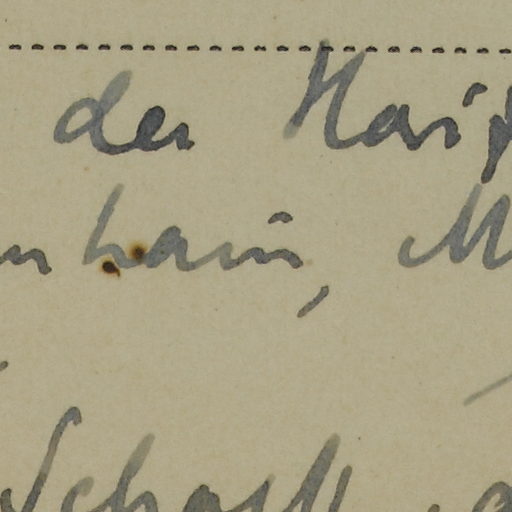 der Hai
nhain, M
schaft